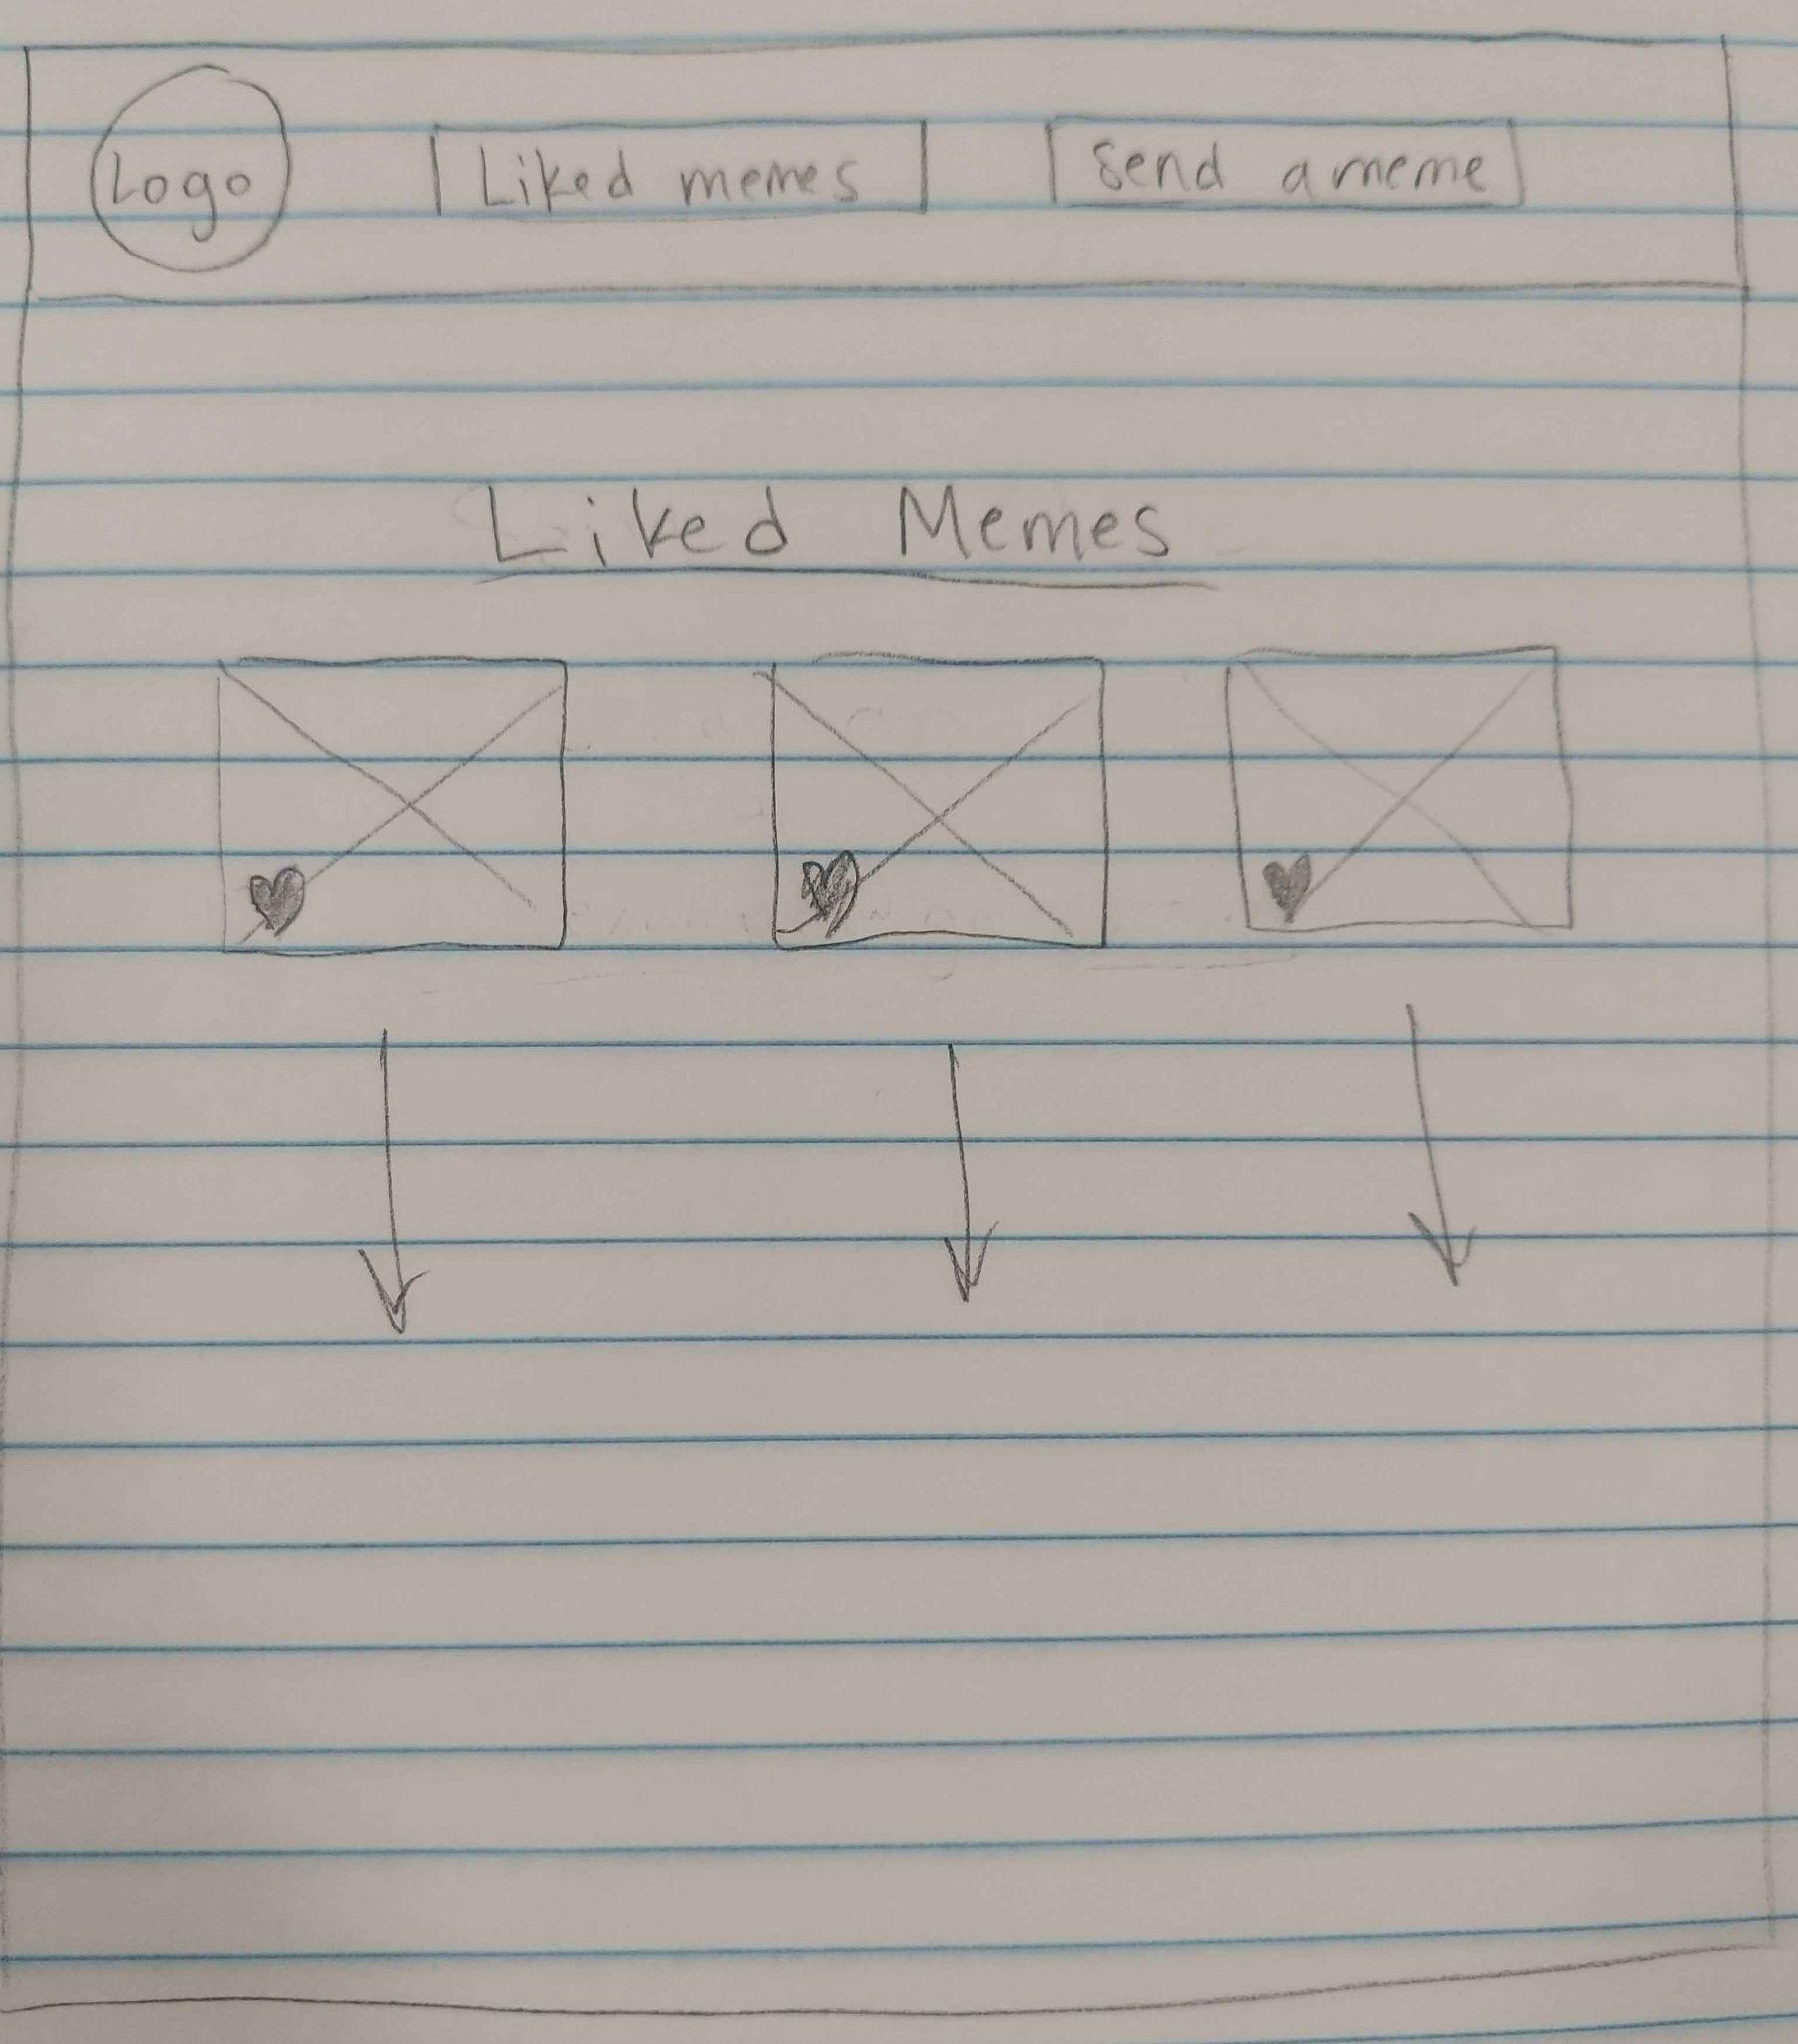 Logo Liked memes Send a meme
Liked Memes